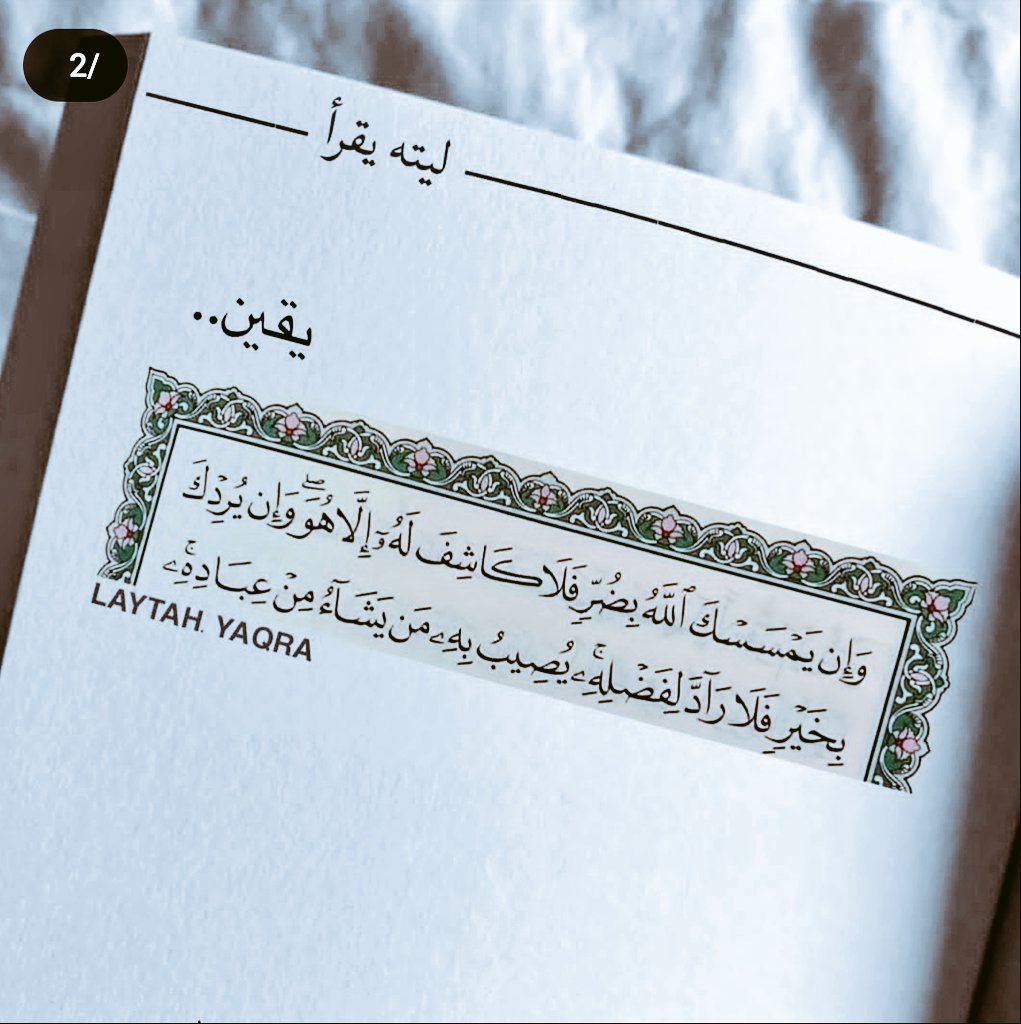 2/
ليته يقرأ
يقين..
وَإِن يَمۡسَسۡكَ ٱللَّهُ بِضُرّٖ فَلَا كَاشِفَ لَهُۥٓ إِلَّا هُوَۖ وَإِن يُرِدۡكَ
بِخَيۡرٖ فَلَا رَآدَّ لِفَضۡلِهِۦۚ يُصِيبُ بِهِۦ مَن يَشَآءُ مِنۡ عِبَادِهِۦۚ
LAYTAH. YAQRA